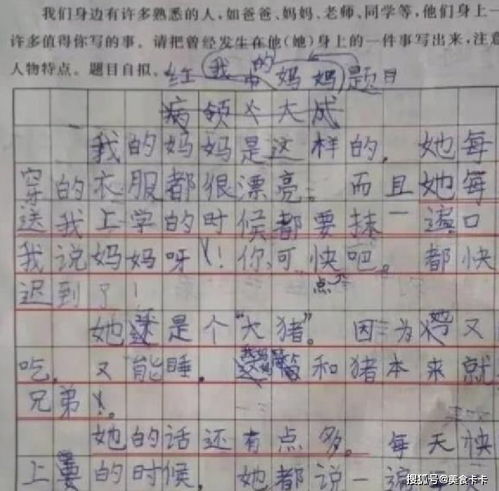 我们身边有许多熟悉的人,如爸爸、妈妈、老师、同学等,他们身上一
许多值得你写的事。请把曾经发生在他(她)身上的一件事写出来,注意
人物特点。题目自拟。
我的妈妈 题目
我的妈妈是这样的,她每
穿的衣服都很漂亮。而且她每
送我上学的时候都要抹一遍口
我说妈妈呀!你可快点吧。都快
迟到了!
她是个“大猪”。因为她又
吃,又能睡。和猪本来就
兄弟!。
她的话还有点多。每天快
上的时候,她都说一遍
搜狐号@美食卡卡